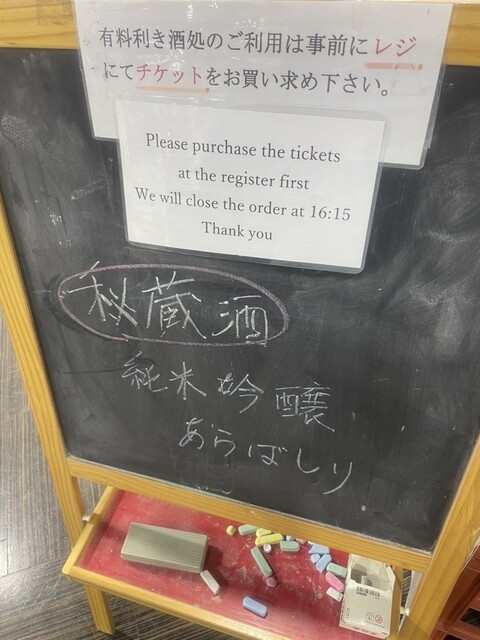 有料利き酒処のご利用は事前にレジ
にてチケットをお買い求め下さい。
Please purchase the tickets
at the register first
We will close the order at 16:15
Thank you
秘蔵酒
純米吟醸
あらばしり